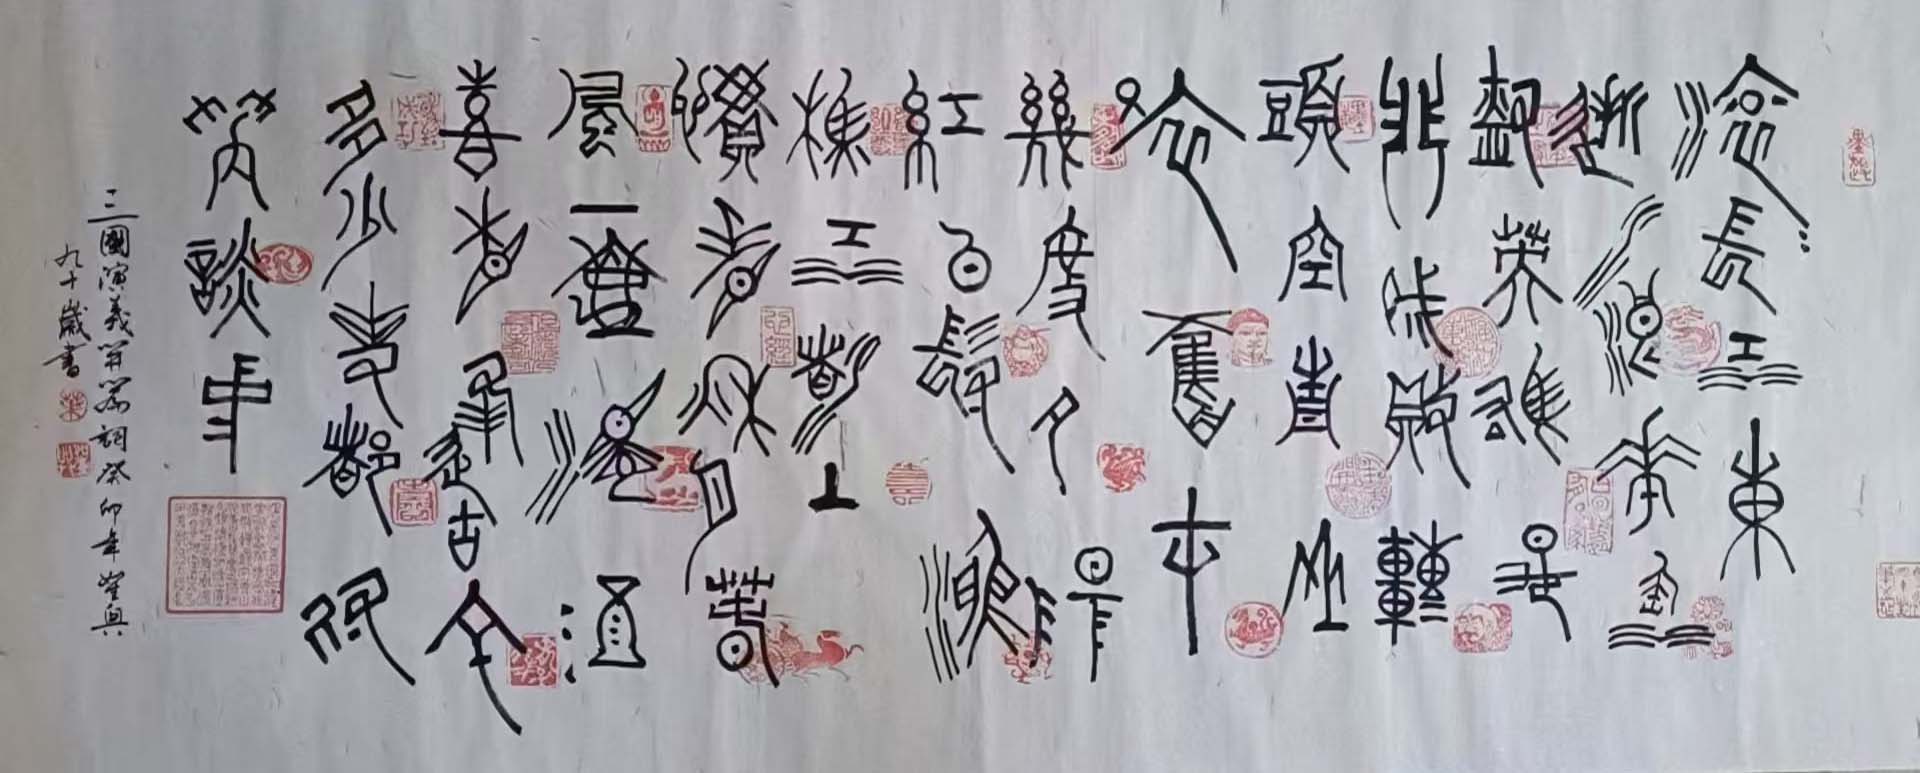 滚〻長江東
逝水浪花淘
盡英雄是
非成敗轉
頭空青山
依舊在
幾度夕陽
紅白髮漁
樵江渚上
慣看秋月春
風一壺濁酒
喜相逢古今
多少事都付
笑談中
三國演義開篇詞癸卯年崔興
九十歲書